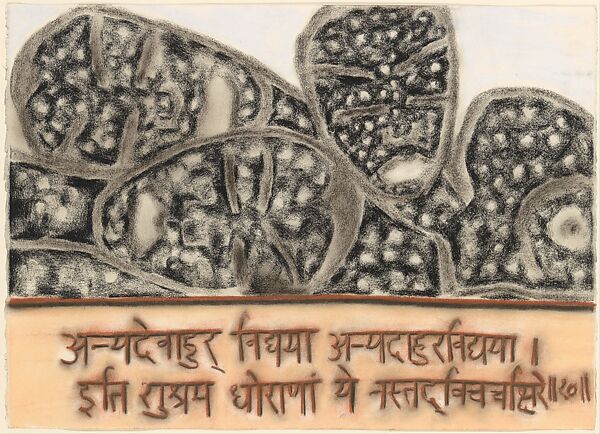 अन्यदेवाहुर् विद्यया अन्यदाहुरविद्यया ।
इति शुश्रम धोराणां ये नस्तद्‌विचचक्षिरे॥१०॥